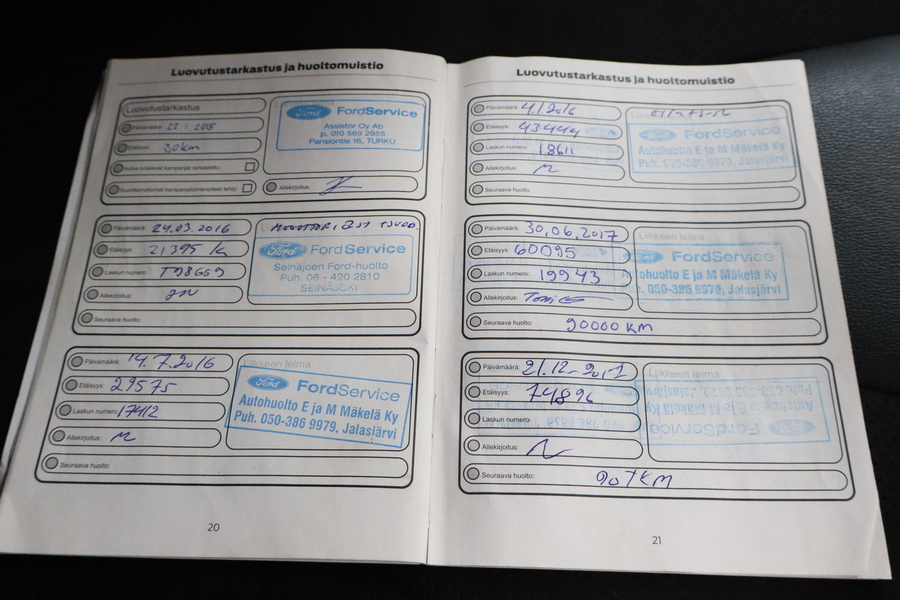 Luovutustarkastus ja huoltomuistio
Luovutustarkastus
Päivämäärä:
Etäisyys: 30km
Allekirjoitus:
Ford FordService
Assistor Oy Ab
p. 010 569 2955
Pansiontie 16, TURKU
Päivämäärä: 24.03.2016
Etäisyys: 21395
Laskun numero: T98669
Allekirjoitus:
Seuraava huolto:
Ford FordService
Seinäjoen Ford-huolto
Puh. 06 - 420 2810
SEINÄJOKI
Päivämäärä: 14.7.2016
Etäisyys: 29575
Laskun numero: 17412
Allekirjoitus:
Seuraava huolto:
Liikkeen leima
Ford FordService
Autohuolto E ja M Mäkelä Ky
Puh. 050-386 9979, Jalasjärvi
20
Luovutustarkastus ja huoltomuistio
Päivämäärä:
Etäisyys: 43444
Laskun numero: 18611
Allekirjoitus:
Seuraava huolto:
Ford FordService
Autohuolto E ja M Mäkelä Ky
Puh. 050-386 9979, Jalasjärvi
Päivämäärä: 30.06.2017
Etäisyys: 60095
Laskun numero: 19943
Allekirjoitus:
Seuraava huolto: 90000 KM
Liikkeen leima
Ford FordService
Autohuolto E ja M Mäkelä Ky
050-386 9979, Jalasjärvi
Päivämäärä: 21.12-2017
Etäisyys: 74896
Laskun numero:
Allekirjoitus:
Seuraava huolto:
Liikkeen leima
Ford FordService
Autohuolto E ja M Mäkelä Ky
Puh. 050-386 9979, Jalasjärvi
21